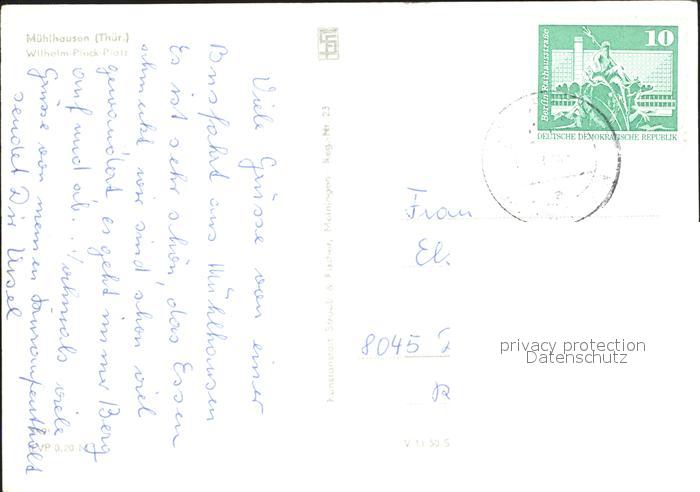 Mühlhausen (Thür.)
Wilhelm-Pieck-Platz
Viele Grüsse von einer
Busfahrt aus Mühlhausen
Es ist sehr schön, das Essen
schmeckt wir sind schon viel
gewandert es geht immer Berg
auf und ab. Nochmals viele
Grüsse von meinem
sendet Dir Ursel
VP 0,20 M
Kunstanstalt Straub & Fischer, Meiningen Reg.-Nr. 23
V 11 50 S
Berlin, Rathausstraße
10
DEUTSCHE DEMOKRATISCHE REPUBLIK
Frau
El.
8045 D
privacy protection
Datenschutz